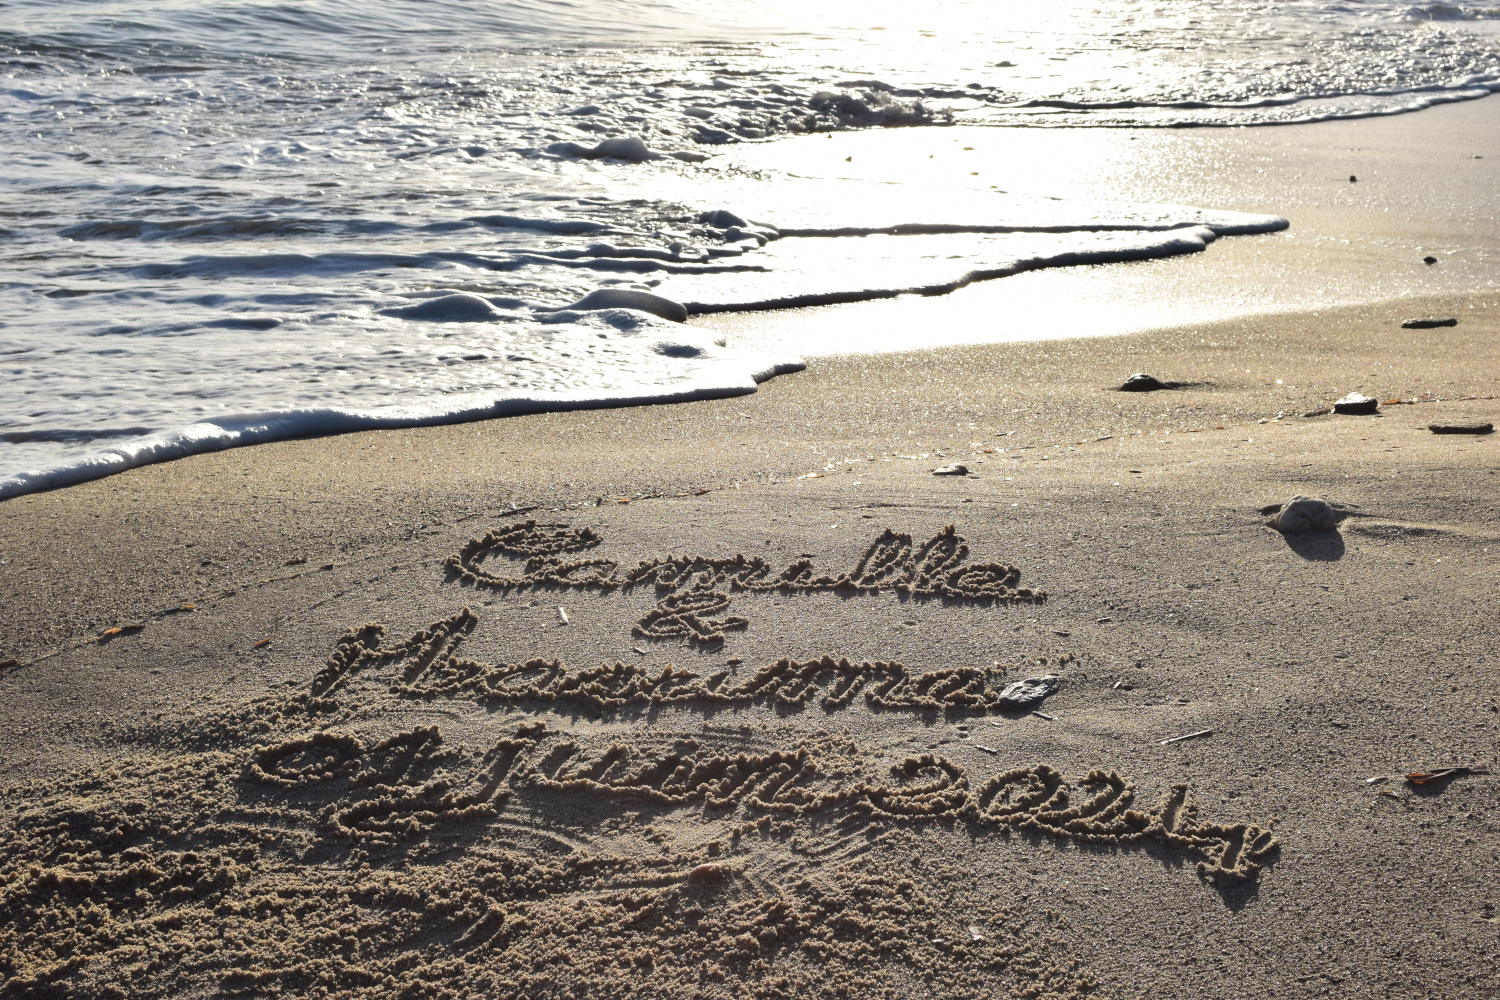 Camille
&
Maxime
07 juin 2014